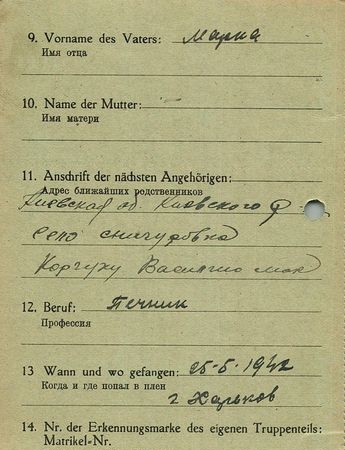 9. Vorname des Vaters: Марка
Имя отца
10. Name der Mutter: —
Имя матери
11. Anschrift der nächsten Angehörigen:
Адрес ближайших родственников
Киевская об. Киевского р
Село
Корчуху Василию Мар
12. Beruf: Печник
Профессия
13 Wann und wo gefangen: 25-5-1942
Когда и где попал в плен
г Харьков
14. Nr. der Erkennungsmarke des eigenen Truppenteils:
Matrikel-Nr.